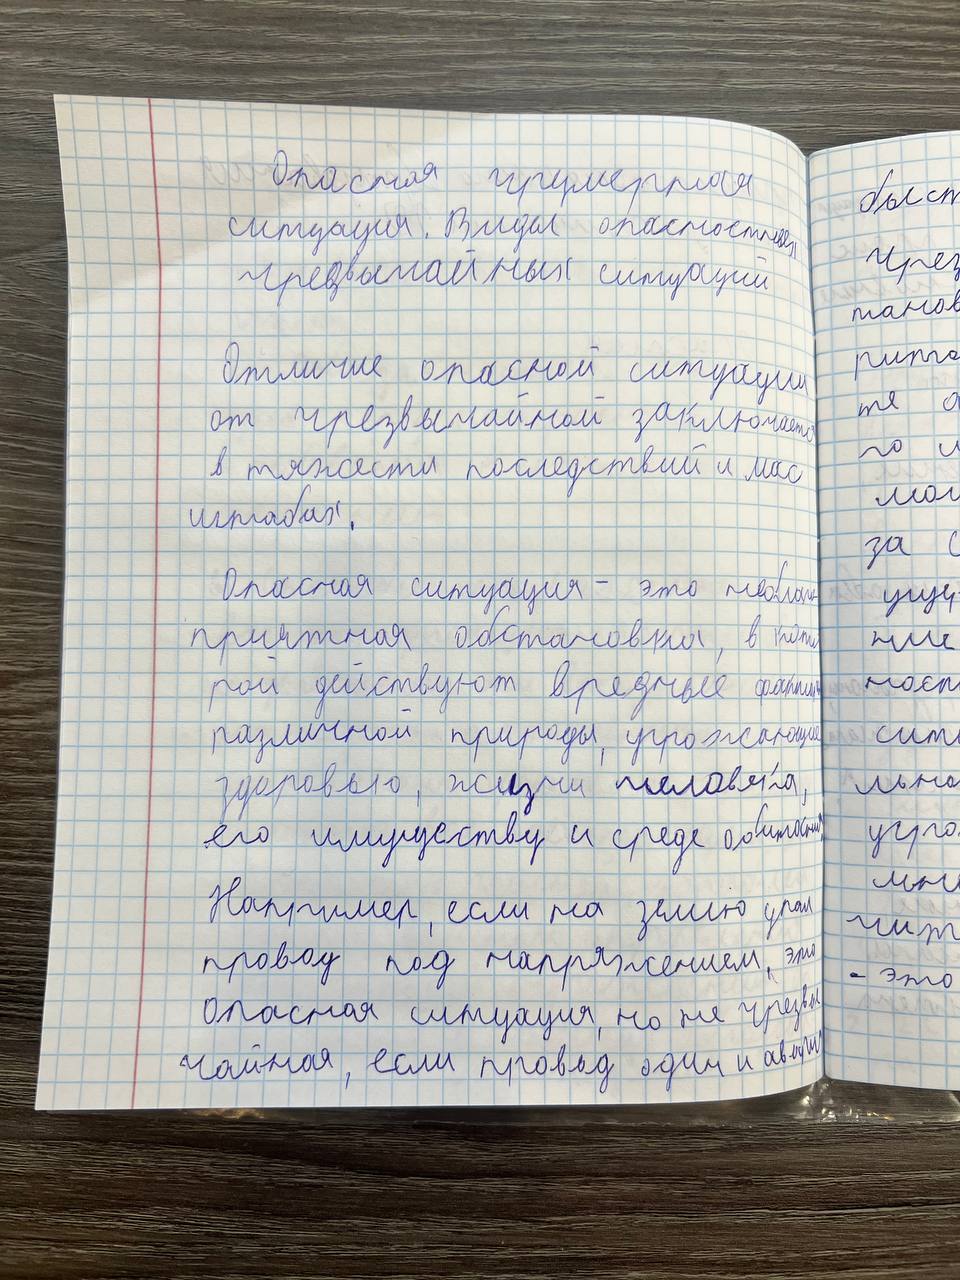 Опасная
ситуация. Виды опасностных
чрезвычайных ситуаций
Отличие опасной ситуации
от чрезвычайной заключается
в тяжести последствий и мас
штабах.
Опасная ситуация - это неблаго
приятная обстановка, в кото
рой действуют вредные факторы
различной природы, угрожающие
здоровью, жизни человека,
его имуществу и среде обитания
Например, если на землю упал
провод под напряжением, это
опасная ситуация, но не чрезвы
чайная, если провод один и
быст
чрез
танов
те
го
за с
ние
ност
сит
льна
угро
чит
- это